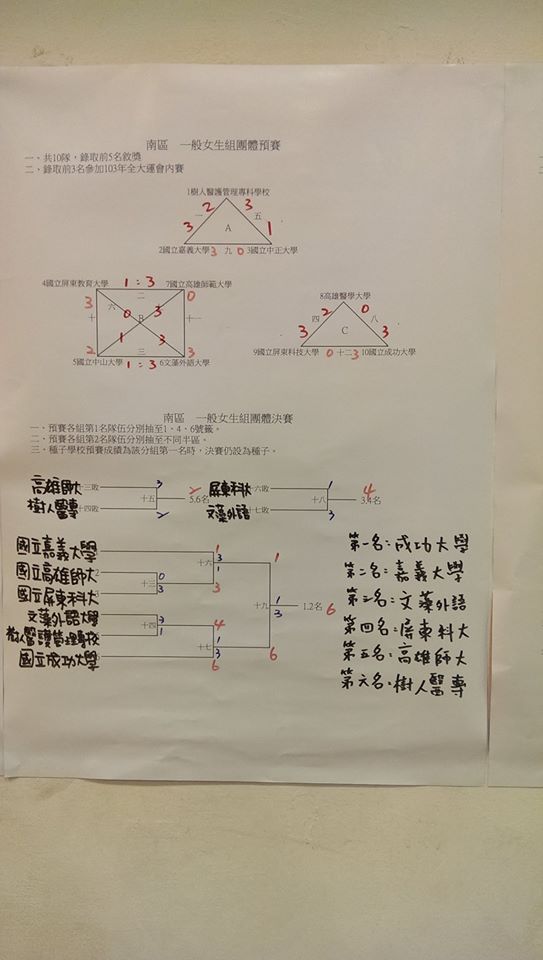 南區　一般女生組團體預賽
一、共10隊，錄取前5名敘獎
二、錄取前3名參加103年全大運會內賽
1樹人醫護管理專科學校
2 3
一 五
A
3 1
2國立嘉義大學 3 九 0 3國立中正大學
4國立屏東教育大學 1 : 3 7國立高雄師範大學
二
3 六 0 B 3 0
十 十一
1 3
2 三 3
5國立中山大學 1 : 3 6文藻外語大學
8高雄醫學大學
2 0
四 八
C
3 3
9國立屏東科技大學 0 十二 3 10國立成功大學
南區　一般女生組團體決賽
一、預賽各組第1名隊伍分別抽至1、4、6號籤。
二、預賽各組第2名隊伍分別抽至不同半區。
三、種子學校預賽成績為該分組第一名時，決賽仍設為種子。
高雄師大 十三敗 3
十五 5.6名
樹人醫專 十四敗 2
屏東科大 十六敗 1 4
十八 3.4名
文藻外語 十七敗 3
國立嘉義大學 1
十六 3 1
國立高雄師大 2 0 1
十三
國立屏東科大 3 3 3
十九 1 1.2名 6
3
文藻外語大學 3 4
十四 1
樹人醫護管理專校 1 十七 3
國立成功大學 6 6
第一名：成功大學
第二名：嘉義大學
第三名：文藻外語
第四名：屏東科大
第五名：高雄師大
第六名：樹人醫專